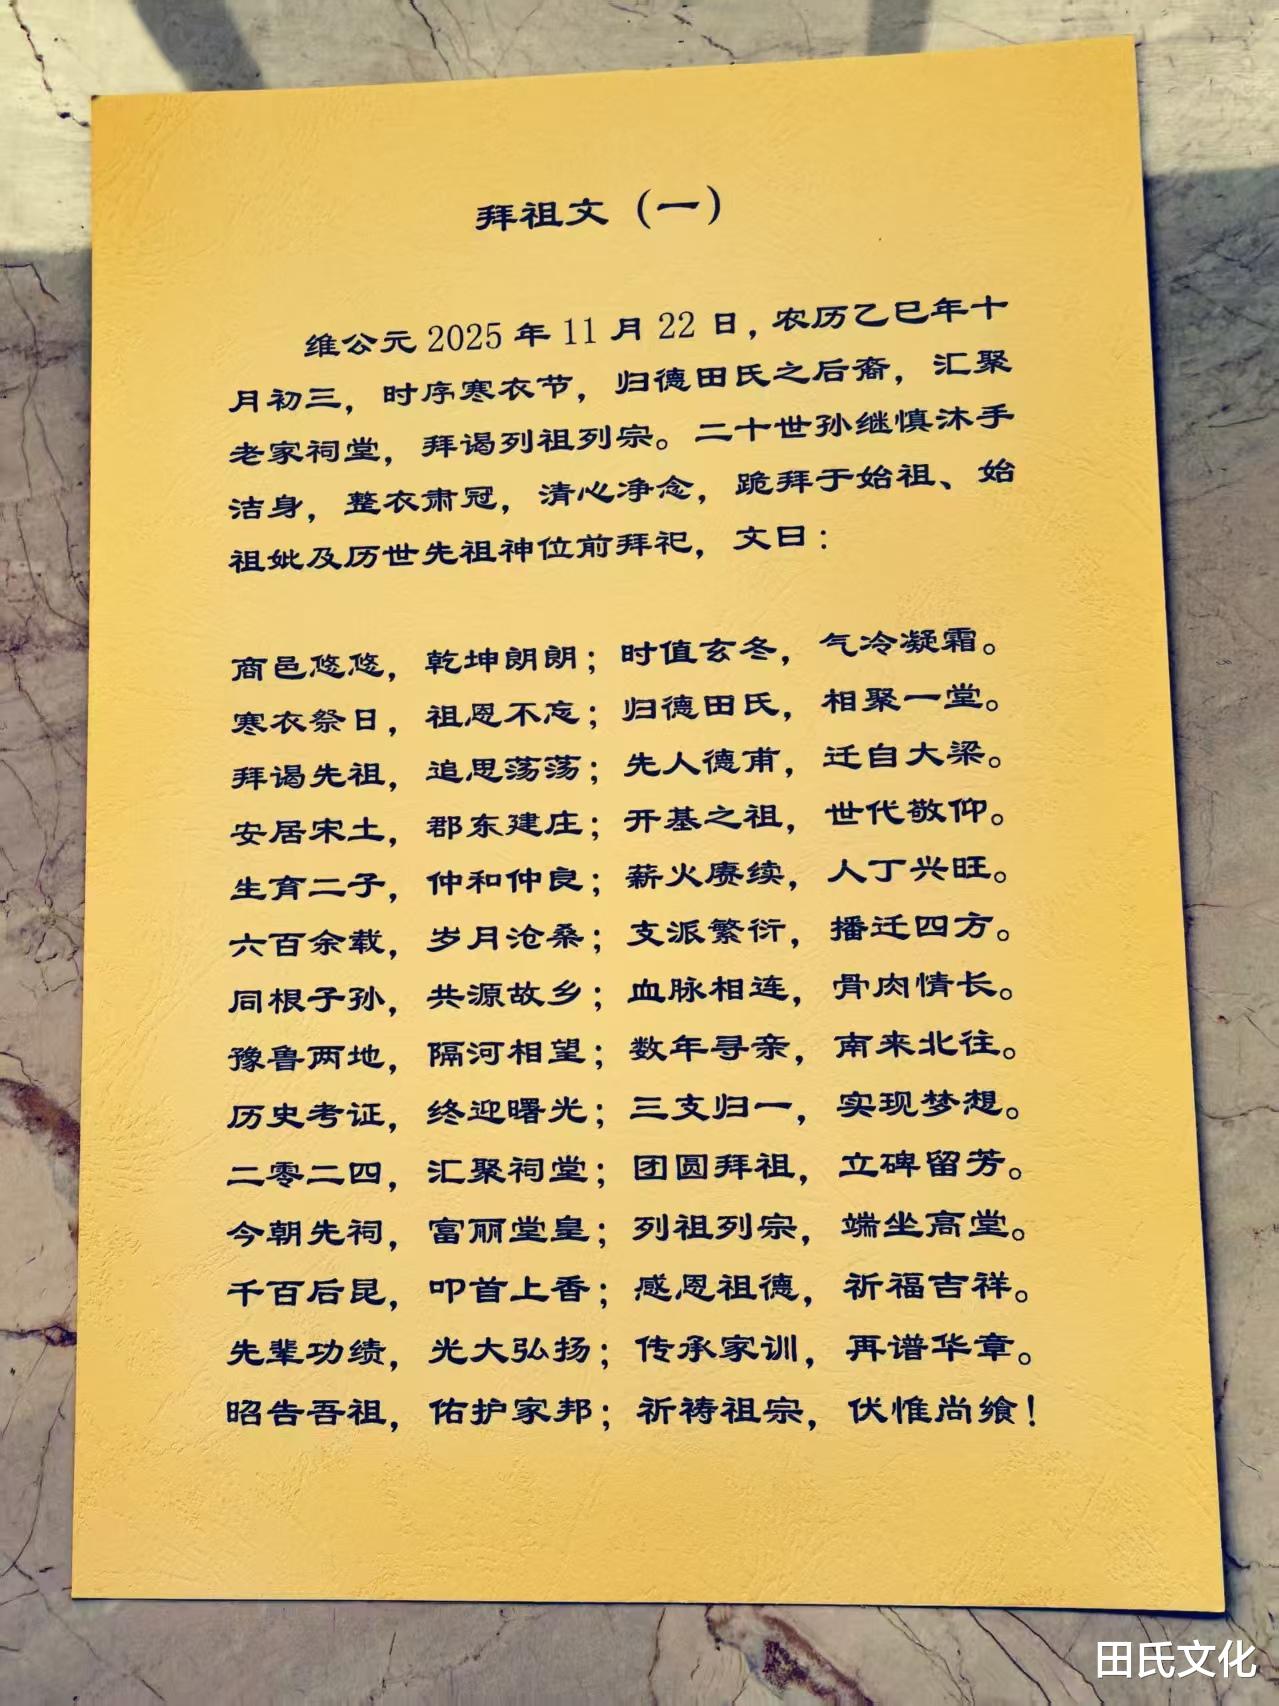 拜祖文（一）
维公元 2025 年 11 月 22 日，农历乙巳年十
月初三，时序寒衣节，归德田氏之后裔，汇聚
老家祠堂，拜谒列祖列宗。二十世孙继慎沐手
洁身，整衣肃冠，清心净念，跪拜于始祖、始
祖妣及历世先祖神位前拜祀，文曰：
商邑悠悠，乾坤朗朗；时值玄冬，气冷凝霜。
寒衣祭日，祖恩不忘；归德田氏，相聚一堂。
拜谒先祖，追思荡荡；先人德甫，迁自大梁。
安居宋土，郡东建庄；开基之祖，世代敬仰。
生育二子，仲和仲良；薪火赓续，人丁兴旺。
六百余载，岁月沧桑；支派繁衍，播迁四方。
同根子孙，共源故乡；血脉相连，骨肉情长。
豫鲁两地，隔河相望；数年寻亲，南来北往。
历史考证，终迎曙光；三支归一，实现梦想。
二零二四，汇聚祠堂；团圆拜祖，立碑留芳。
今朝先祠，富丽堂皇；列祖列宗，端坐高堂。
千百后昆，叩首上香；感恩祖德，祈福吉祥。
先辈功绩，光大弘扬；传承家训，再谱华章。
昭告吾祖，佑护家邦；祈祷祖宗，伏惟尚飨！
田氏文化